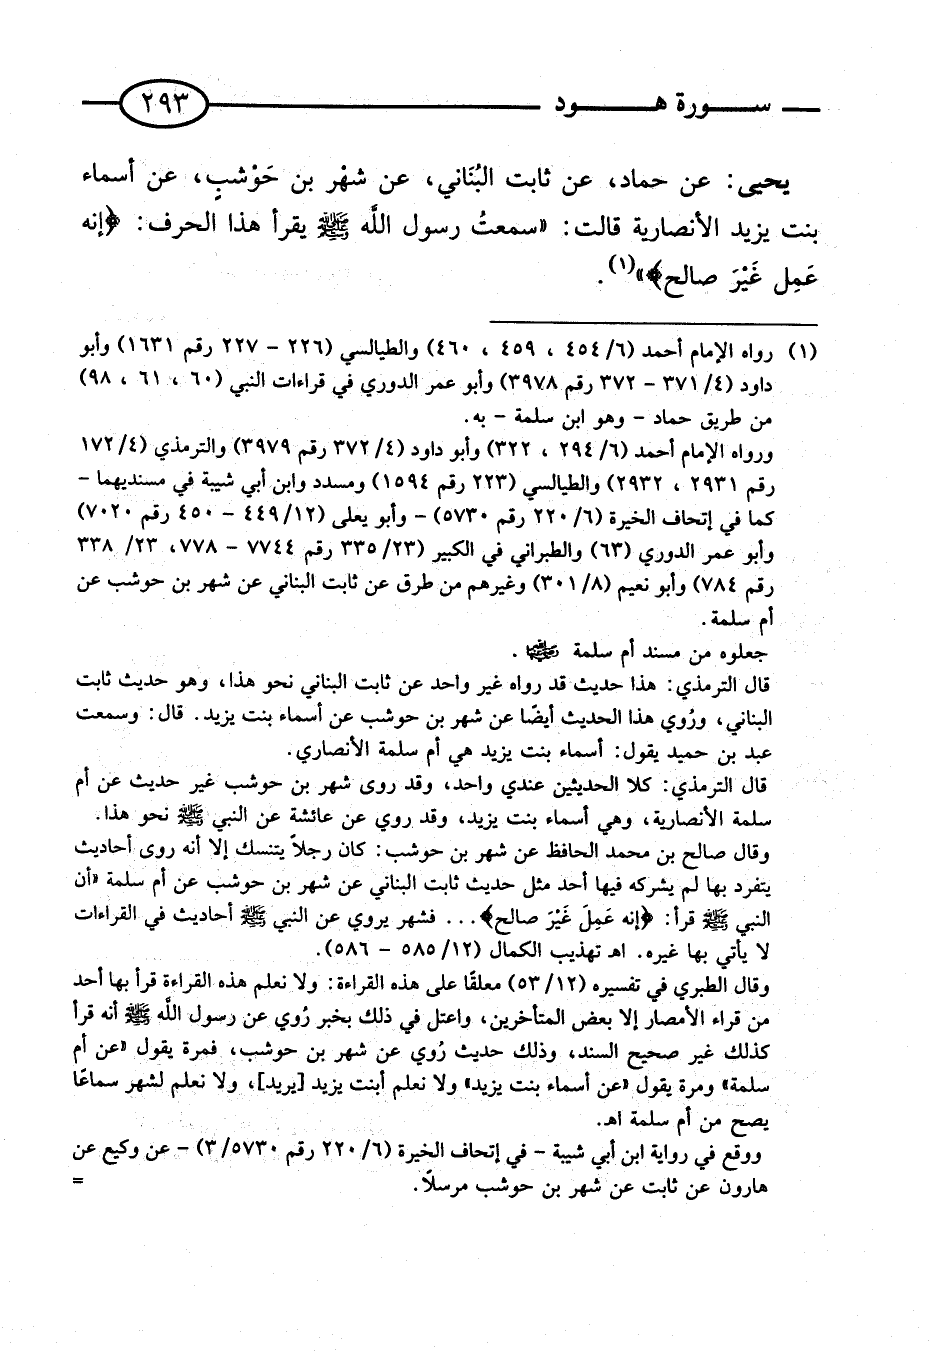 سورة هود ٢٩٣
يحيى: عن حماد، عن ثابت البُنَاني، عن شهْر بن حَوْشبٍ، عن أسماء
بنت يزيد الأنصارية قالت: «سمعتُ رسول اللَّه ﷺ يقرأ هذا الحرف: ﴿إنه
عَمِل غَيْرَ صالح﴾»(١).
(١) رواه الإمام أحمد (٦/ ٤٥٤ ، ٤٥٩ ، ٤٦٠) والطيالسي (٢٢٦ - ٢٢٧ رقم ١٦٣١) وأبو
داود (٤/ ٣٧١ - ٣٧٢ رقم ٣٩٧٨) وأبو عمر الدوري في قراءات النبي (٦٠ ، ٦١ ، ٩٨)
من طريق حماد - وهو ابن سلمة - به.
ورواه الإمام أحمد (٦/ ٢٩٤ ، ٣٢٢) وأبو داود (٤/ ٣٧٢ رقم ٣٩٧٩) والترمذي (٤/ ١٧٢
رقم ٢٩٣١ ، ٢٩٣٢) والطيالسي (٢٢٣ رقم ١٥٩٤) ومسدد وابن أبي شيبة في مسنديهما -
كما في إتحاف الخيرة (٦/ ٢٢٠ رقم ٥٧٣٠) - وأبو يعلى (١٢/ ٤٤٩ - ٤٥٠ رقم ٧٠٢٠)
وأبو عمر الدوري (٦٣) والطبراني في الكبير (٢٣/ ٣٣٥ رقم ٧٧٤٤ - ٧٧٨، ٢٣/ ٣٣٨
رقم ٧٨٤) وأبو نعيم (٨/ ٣٠١) وغيرهم من طرق عن ثابت البناني عن شهر بن حوشب عن
أم سلمة.
جعلوه من مسند أم سلمة .
قال الترمذي: هذا حديث قد رواه غير واحد عن ثابت البناني نحو هذا، وهو حديث ثابت
البناني، ورُوي هذا الحديث أيضًا عن شهر بن حوشب عن أسماء بنت يزيد. قال: وسمعت
عبد بن حميد يقول: أسماء بنت يزيد هي أم سلمة الأنصاري.
قال الترمذي: كلا الحديثين عندي واحد، وقد روى شهر بن حوشب غير حديث عن أم
سلمة الأنصارية، وهي أسماء بنت يزيد، وقد روي عن عائشة عن النبي ﷺ نحو هذا.
وقال صالح بن محمد الحافظ عن شهر بن حوشب: كان رجلاً يتنسك إلا أنه روى أحاديث
يتفرد بها لم يشركه فيها أحد مثل حديث ثابت البناني عن شهر بن حوشب عن أم سلمة «أن
النبي ﷺ قرأ: ﴿إنه عَمِلَ غَيْرَ صالح﴾... فشهر يروي عن النبي ﷺ أحاديث في القراءات
لا يأتي بها غيره. اهـ تهذيب الكمال (١٢/ ٥٨٥ - ٥٨٦).
وقال الطبري في تفسيره (١٢/ ٥٣) معلقًا على هذه القراءة: ولا نعلم هذه القراءة قرأ بها أحد
من قراء الأمصار إلا بعض المتأخرين، واعتل في ذلك بخبر رُوي عن رسول اللَّه ﷺ أنه قرأ
كذلك غير صحيح السند، وذلك حديث رُوي عن شهر بن حوشب، فمرة يقول «عن أم
سلمة» ومرة يقول «عن أسماء بنت يزيد» ولا نعلم أبنت يزيد [يريد]، ولا نعلم لشهر سماعًا
يصح من أم سلمة اهـ.
ووقع في رواية ابن أبي شيبة - في إتحاف الخيرة (٦/ ٢٢٠ رقم ٥٧٣٠/ ٣) - عن وكيع عن
هارون عن ثابت عن شهر بن حوشب مرسلاً. =